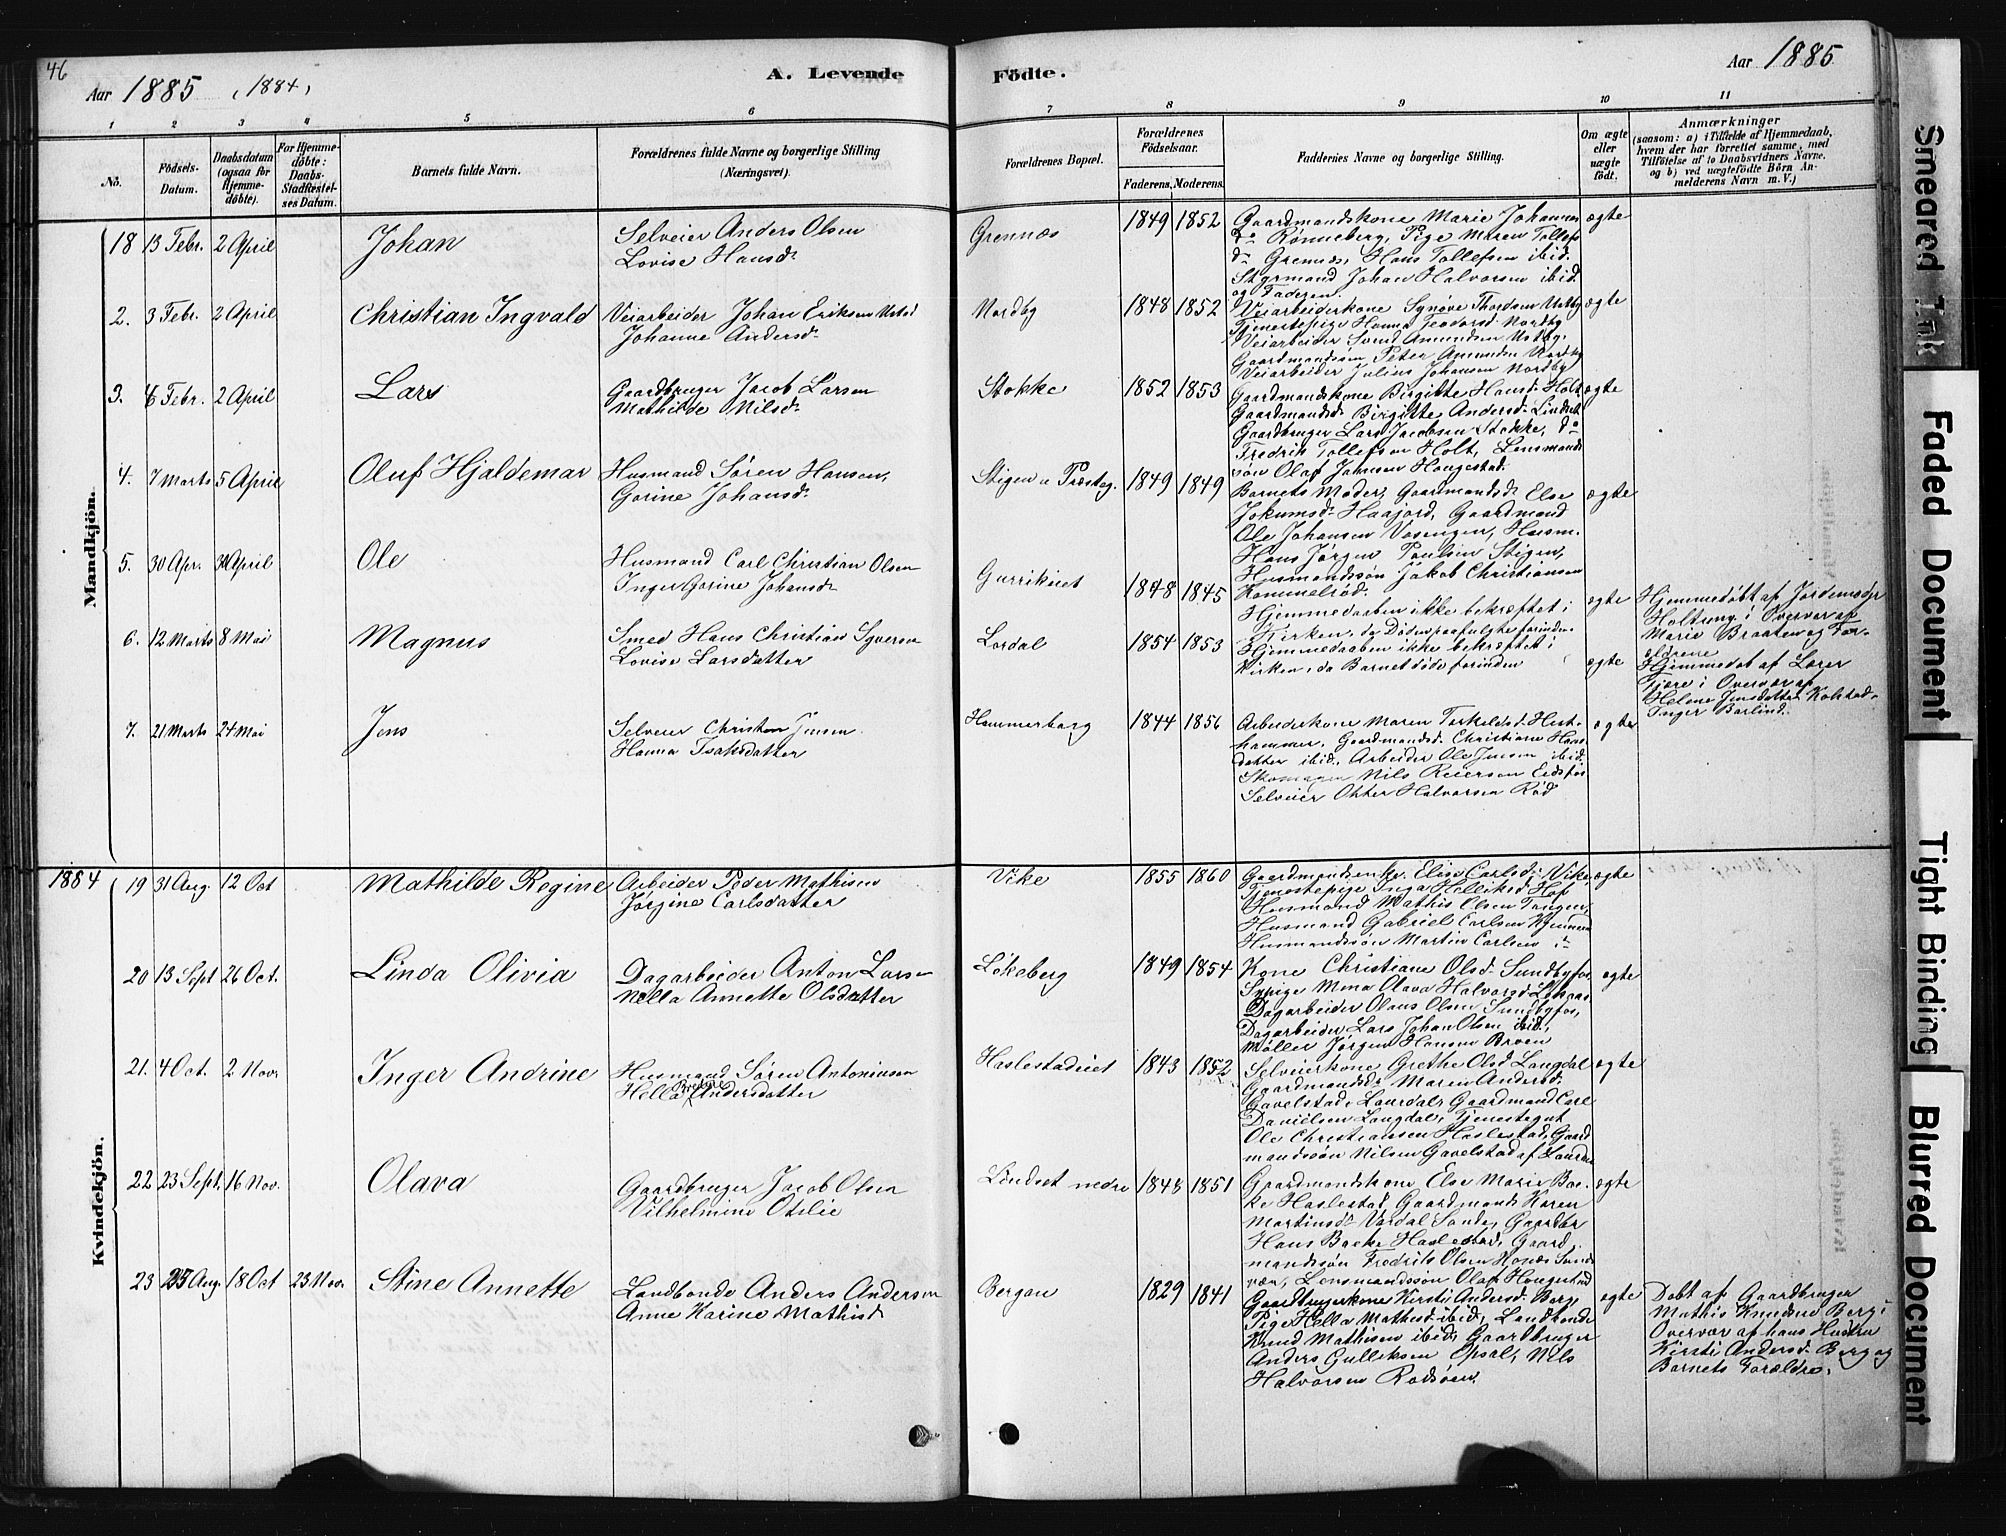 46
Aar 1885 (1884)
A. Levende
Födte.
Aar 1885
1 2 3 4 5 6 7 8 9 10 11
No.
Födsels-Datum.
Daabsdatum (ogsaa for Hjemme-döbte).
For Hjemme-döbte: Daabs-Stadfæstel-ses Datum.
Barnets fulde Navn.
Forældrenes fulde Navne og borgerlige Stilling (Næringsvei).
Forældrenes Bopæl.
Forældrenes Födselsaar.
Faderens. Moderens.
Faddernes Navne og borgerlige Stilling.
Om ægte eller uægte födt.
Anmærkninger
(saasom: a) i Tilfælde af Hjemmedaab, hvem der har forrettet samme, med Tilföielse af to Daabsvidners Navne. og b) ved uægtefödte Börn Anmelderens Navn m. V.)
Mandkjön.
18 13 Febr. 2 April
Johan
Selveier Anders Olsen
Lovise Hansd.
Grennæs
1849 1852
Gaardmandskone Marie Johannes
d. Rønneberg, Pige Maren Tollefs
d. Grennæs, Hans Tollefsen ibid.
Styrmand Johan Halvorsen ibid.
og Faderen.
ægte
2. 3 Febr. 2 April
Christian Ingvald
Veiarbeider Johan Eriksen
Johanne Andersd.
Nordby
1848 1852
Veiarbeiderkone Synøve Thordsen
Tjenestepige Hanna Teodorsd. Nordby
Veiarbeider Svend Amundsen
Gaardmandssøn Peter Amundsen Nordby
Veiarbeider Julius Johansen Nordby
ægte
3. 6 Febr. 2 April
Lars
Gaardbruger Jacob Larsen
Mathilde Nilsd.
Stokke
1852 1853
Gaardmandskone Birgitte Hansd. Holt
Gaardmandsd. Birgitte Andersd. Lindset
Gaardbruger Lars Jacobsen Stokke, do
Fredrik Tollefsen Holt, Lensmands
søn Olaf Jansen Haugestad.
ægte
4. 7 Marts 5 April
Oluf Hjaldemar
Husmand Søren Hansen,
Gorine Johansd.
Stigen u Præsteg.
1849 1849
Barnets Moder, Gaardmandsd. Else
Jokumsd. Haajord, Gaardmand
Ole Johansen Vasengen, Husm.
Hans Jørgen Paulsen Stigen,
Husmandssøn Jakob Christiansen
Kommelrød.
ægte
5. 30 Apr. 30 April
Ole
Husmand Carl Christian Olsen
Inger Gorine Johansd.
Gurrikeiet
1848 1845
Hjemmedaaben ikke bekræftet i
Kirken, da Døden paafulgte forinden
ægte
Hjemmedøbt af Jordemoder
Holtung i Overvær af
Marie Braaten og For-
ældrene
6. 12 Marts 8 Mai
Magnus
Smed Hans Christian Syversen
Lovise Larsdatter
Lordal
1854 1853
Hjemmedaaben ikke bekræftet i
Kirken, da Barnet døde forinden
ægte
Hjemmedøbt af Lærer
Tjære i Overvær af
Helene Jensdatter Kolstad
Inger Barlind.
7. 21 Marts 24 Mai
Jens
Selveier Christen Jensen
Hanna Isaksdatter
Hammerberg
1844 1856
Arbeiderkone Maren Terkelsd. Hest-
hammer, Gaardmandsd. Christiane Hans-
datter ibid., Arbeider Ole Jensen ibid.
Skomager Nils Reiersen Eidsfos
Selveier Otter Halvorsen Rød
ægte
1884
Kvindekjön.
19 31 Aug. 12 Oct
Mathilde Regine
Arbeider Peder Mathisen
Jørgine Carlsdatter
Vike
1855 1860
Gaardmandsenke Elise Carlsd. Vike,
Tjenestepige Inga Helliksd. Hof
Husmand Mathis Olsen Tangen,
Husmand Gabriel Carlsen
Husmandssøn Martin Carlsen
ægte
20 13 Sept 26 Oct.
Linda Olivia
Dagarbeider Anton Larsen
Nella Annette Olsdatter
Løkeberg
1849 1854
Kone Christiane Olsd. Sundbyfos,
Sypige Mina Olava Halvorsd.
Dagarbeider Olaus Olsen Sundbyfos,
Dagarbeider Lars Johan Olsen ibid,
Møller Jørgen Hansen Broen
ægte
21. 4 Oct. 2 Nov.
Inger Andrine
Husmand Søren Antonissen
Hella Bredine Andersdatter
Haslestadeiet
1843 1852
Selveierkone Grethe Olsd. Langdal
Gaardmandsd. Maren Andersd.
Gavelstad, Laurdal, Gaardmand Carl
Danielsen Langdal, Tjenestegut
Ole Christiansen Haslestad, Gaard
mandssøn Nilsen Gavelstad af Laurdal
ægte
22 23 Sept. 16 Nov.
Olava
Gaardbruger Jacob Olsen
Vilhelmine Otilie
Lindset nedre
1848 1851
Gaardmandskone Else Marie Bac-
ke Haslestad, Gaardmandsd. Karen
Martinsd. Vardal Sande, Gaardbr
Hans Backe Haslestad, Gaard
mandssøn Fredrik Olsen
Lensmandssøn Olaf Haugestad
ægte
23 23 Aug. 18 Oct 23 Nov.
Stine Annette
Landbonde Anders Andersen
Anne Karine Mathisd
Bergan
1829 1841
Gaardbrugerkone Kirsti Andersd. Berg,
Pige Hella Mathisd. ibid, Landbonde
Knud Mathisen ibid, Gaardbruger
Anders Gulliksen Opsal, Nils
Halvorsen Rødsøen.
ægte
Døbt af Gaardbruger
Mathis Knudsen Berg i
Overvær af hans Hustru
Kirsti Andersd. Berg og
Barnets Forældre.
Smeared Ink
Faded Document
Tight Binding
Blurred Document